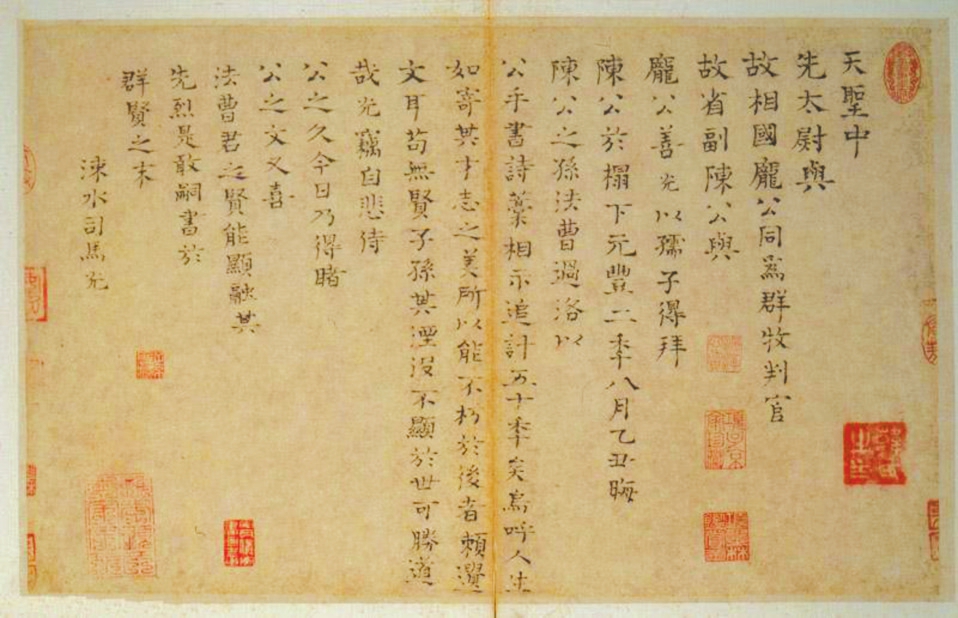 天聖中
先太尉與
故相國龐公同爲群牧判官
故省副陳公與
龐公善光以孺子得拜
陳公於榻下元豐二秊八月乙丑晦
陳公之孫法曹過洛以
公手書詩藁相示追計五十秊矣烏呼人生
如寄其才志之美所以能不朽於後者賴遺
文耳苟無賢子孫其湮沒不顯於世可勝道
哉光竊自悲侍
公之久今日乃得睹
公之文又喜
法曹君之賢能顯融其
先烈是敢嗣書於
群賢之末
涑水司馬光